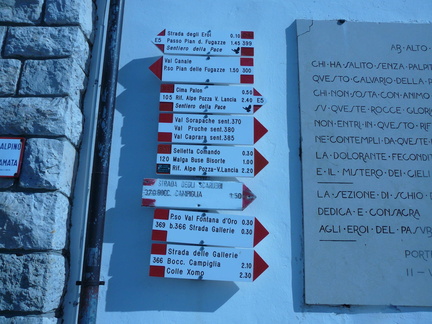 Strada degli Eroi 3.10
Passo Pian d. Fugazze 1.45 399
E5 Sentiero della Pace
Val Canale
P.so Pian delle Fugazze 1.50 300
Cima Palon 0.50
105 Rif. Alpe Pozza V. Lancia 2.40 E5
Sentiero della Pace
Val Sorapache sent.370
Val Pruche sent.380
Val Caprara sent.385
Selletta Comando 0.30
120 Malga Buse Bisorte 1.00
Rif. Alpe Pozza-V.Lancia 2.20
STRADA DEGLI
BOCC. CAMPIGLIA
P.so Val Fontana d'Oro 0.30
369 b.366 Strada Gallerie 0.30
Strada delle Gallerie
366 Bocc. Campiglia 2.10
Colle Xomo 2.30
ALPINO
AMATA
AR·ALTO
CHI·HA·SALITO·SENZA·PALPIT
QVESTO·CALVARIO·DELLA·P
CHI·NON·SOSTA·CON·ANIMO
SV·QVESTE·ROCCE·GLOR
NON·ENTRI·IN·QVESTO·RIF
NE·CONTEMPLI·DA·QVESTE
LA·DOLORANTE·FECONDI
E·IL·MISTERO·DEI·CIELI
LA·SEZIONE·DI·SCHIO·D
DEDICA·E·CONSACRA
AGLI·EROI·DEL·PASVB
PORTE